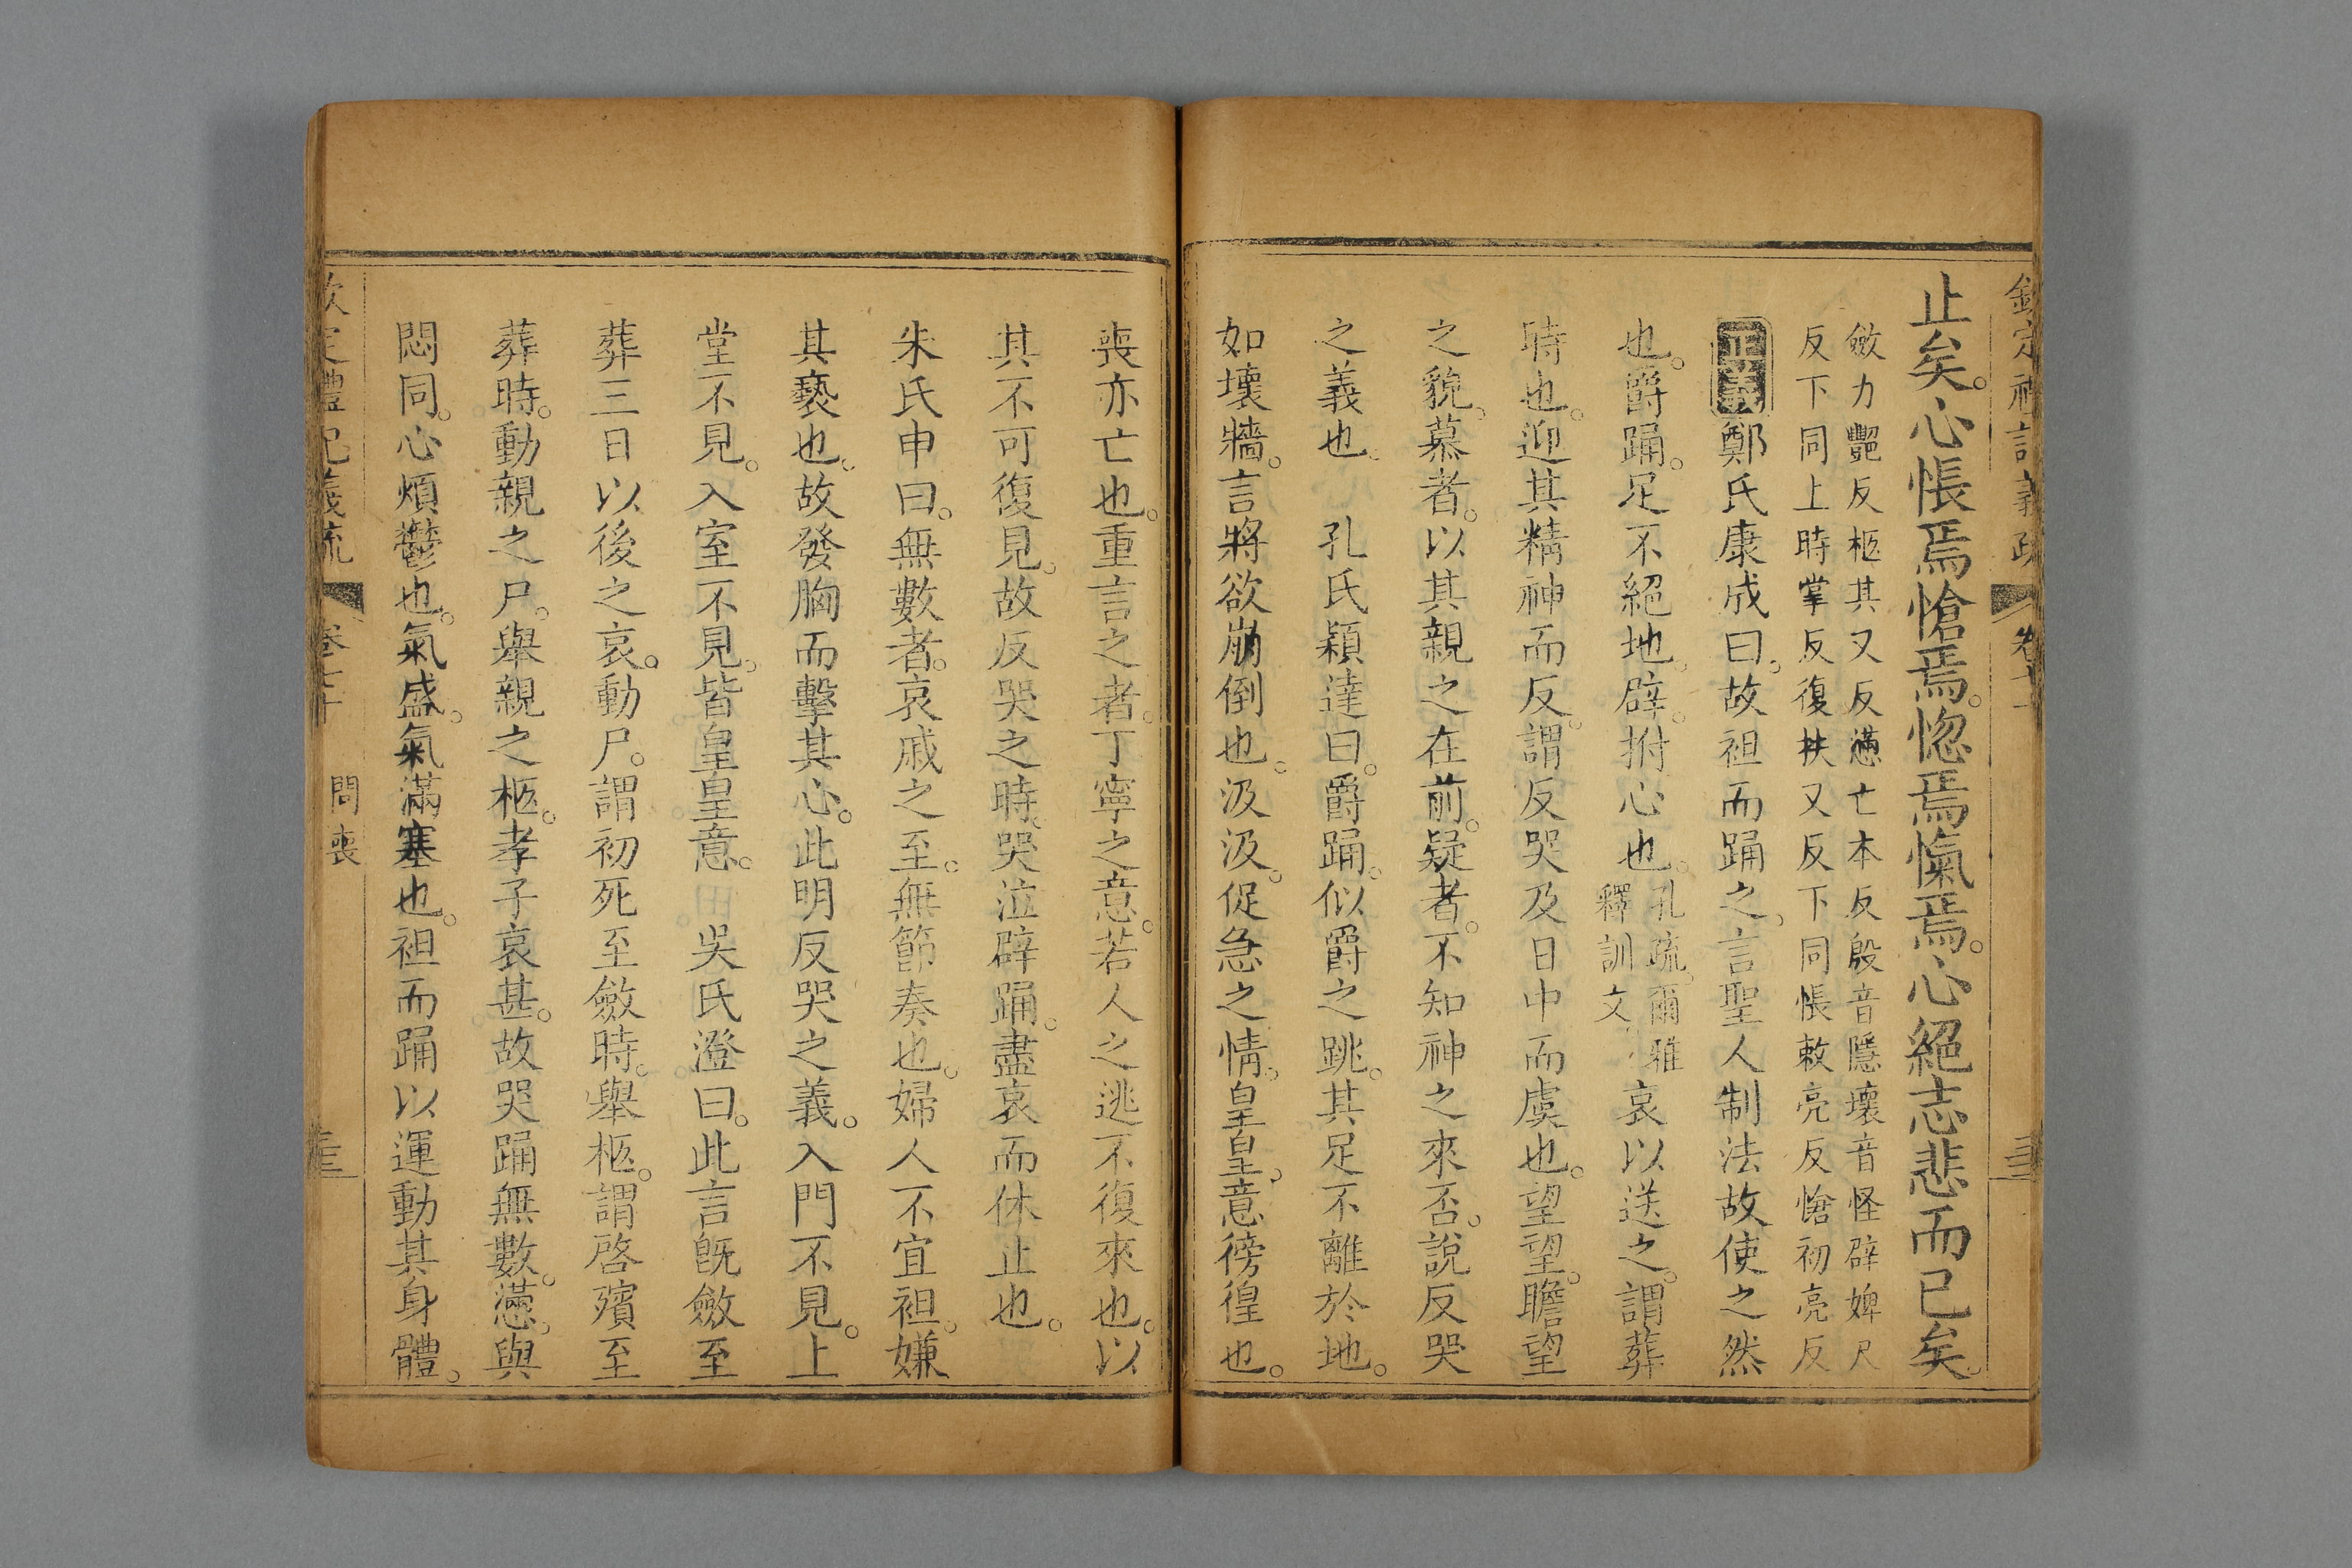 欽定禮記義疏 卷七十
止矣。心悵焉愴焉。惚焉愾焉。心絕志悲而已矣。
斂力豔反柩其又反懣亡本反殷音隱壞音怪辟婢尺
反下同上時掌反復扶又反下同悵敕亮反愴初亮反
正義鄭氏康成曰。故袒而踊之。言聖人制法故使之然
也。爵踊。足不絕地。辟。拊心也。孔疏。爾雅釋訓文。哀以送之。謂葬
時也。迎其精神而反。謂反哭及日中而虞也。望望。瞻望
之貌。慕者。以其親之在前。疑者。不知神之來否。說反哭
之義也。 孔氏穎達曰。爵踊。似爵之跳。其足不離於地。
如壞牆。言將欲崩倒也。汲汲。促急之情。皇皇。意徬徨也。
喪亦亡也。重言之者。丁寧之意。若人之逃不復來也。以
其不可復見。故反哭之時。哭泣辟踊。盡哀而休止也。
朱氏申曰。無數者。哀戚之至。無節奏也。婦人不宜袒。嫌
其褻也。故發胸而擊其心。此明反哭之義。入門不見。上
堂不見。入室不見。皆皇皇意。 吳氏澄曰。此言旣斂至
葬三日以後之哀。動尸。謂初死至斂時。舉柩。謂啓殯至
葬時。動親之尸。舉親之柩。孝子哀甚。故哭踊無數。懣。與
悶同。心煩鬱也。氣盛。氣滿塞也。袒而踊以運動其身體。
欽定禮記義疏 卷七十 問喪